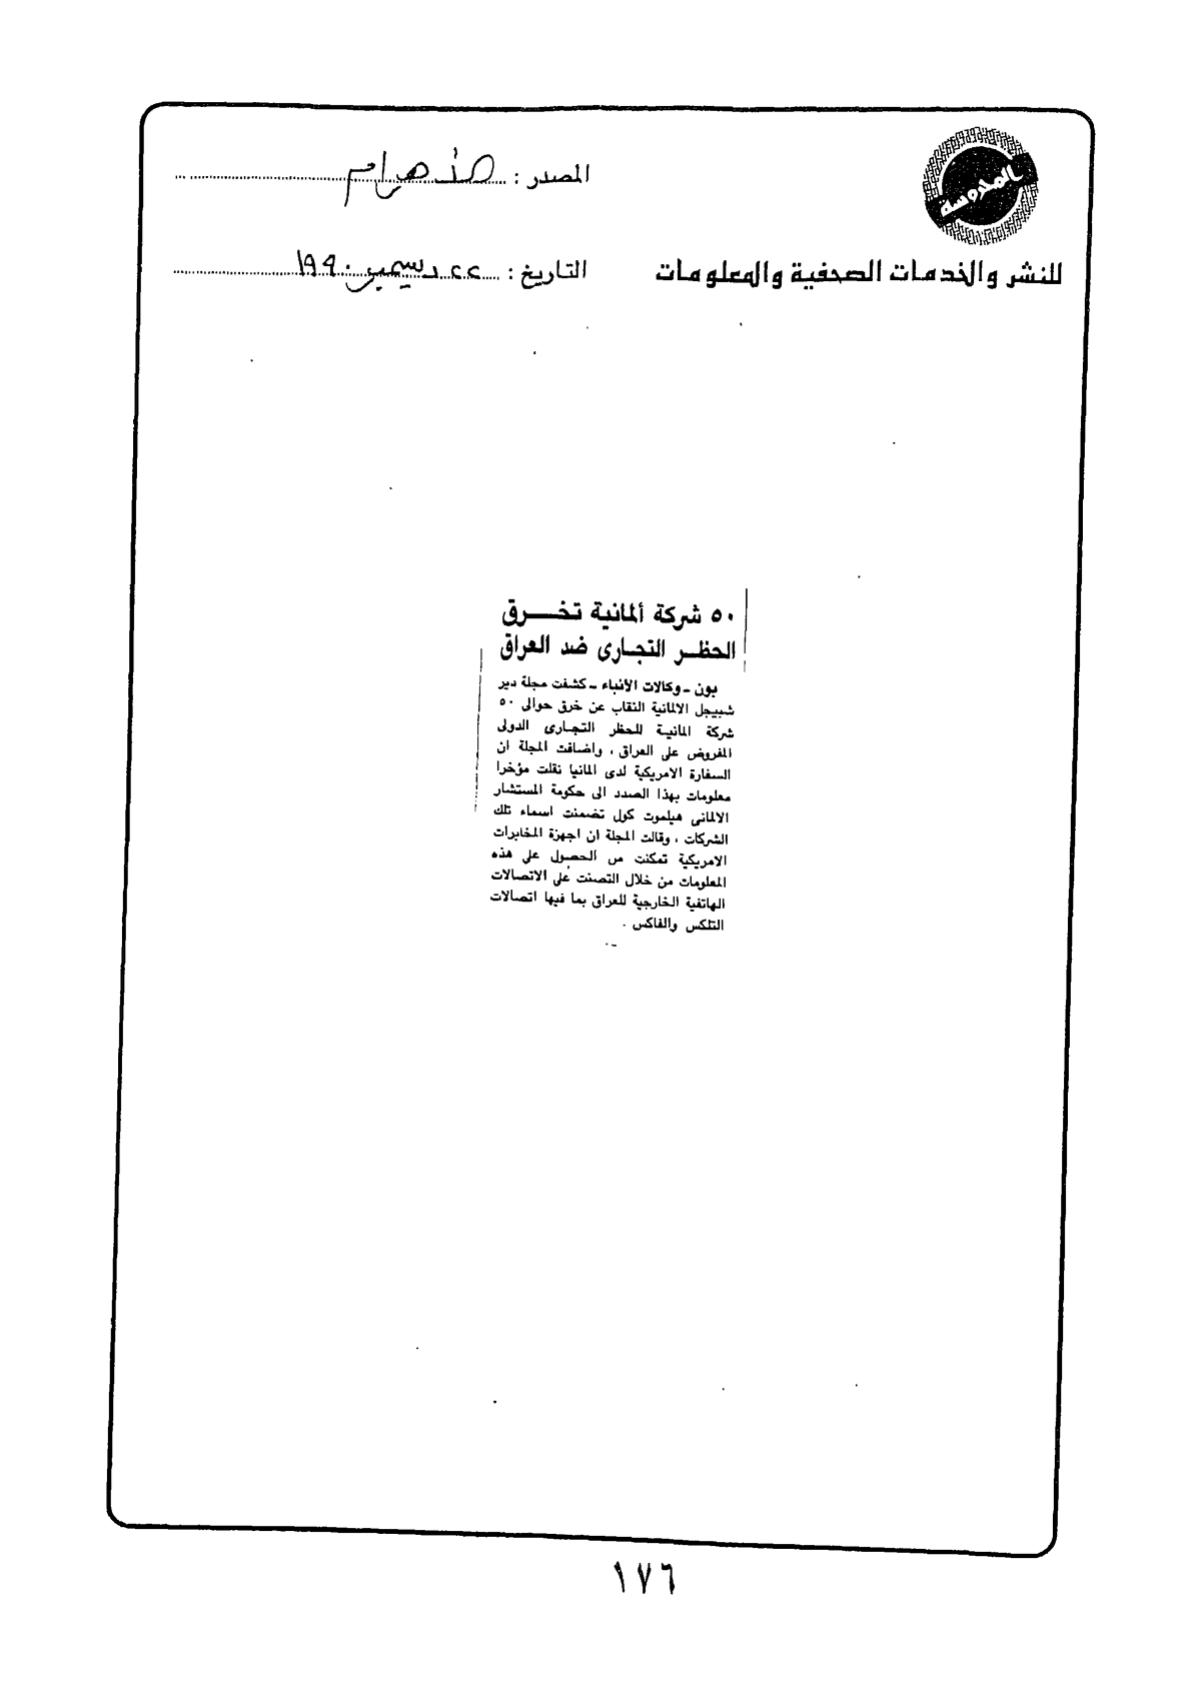 المحروسة
للنشر والخدمات الصحفية والمعلومات
المصدر :
التاريخ : ٢٢ ديسمبر ١٩٩٠
٥٠ شركة ألمانية تخرق
الحظر التجارى ضد العراق
بون - وكالات الأنباء - كشفت مجلة دير
شبيجل الالمانية النقاب عن خرق حوالى ٥٠
شركة المانية للحظر التجارى الدولى
المفروض على العراق ، واضافت المجلة ان
السفارة الامريكية لدى المانيا نقلت مؤخرا
معلومات بهذا الصدد الى حكومة المستشار
الالمانى هيلموت كول تضمنت اسماء تلك
الشركات ، وقالت المجلة ان اجهزة المخابرات
الامريكية تمكنت من الحصول على هذه
المعلومات من خلال التصنت على الاتصالات
الهاتفية الخارجية للعراق بما فيها اتصالات
التلكس والفاكس .
١٧٦